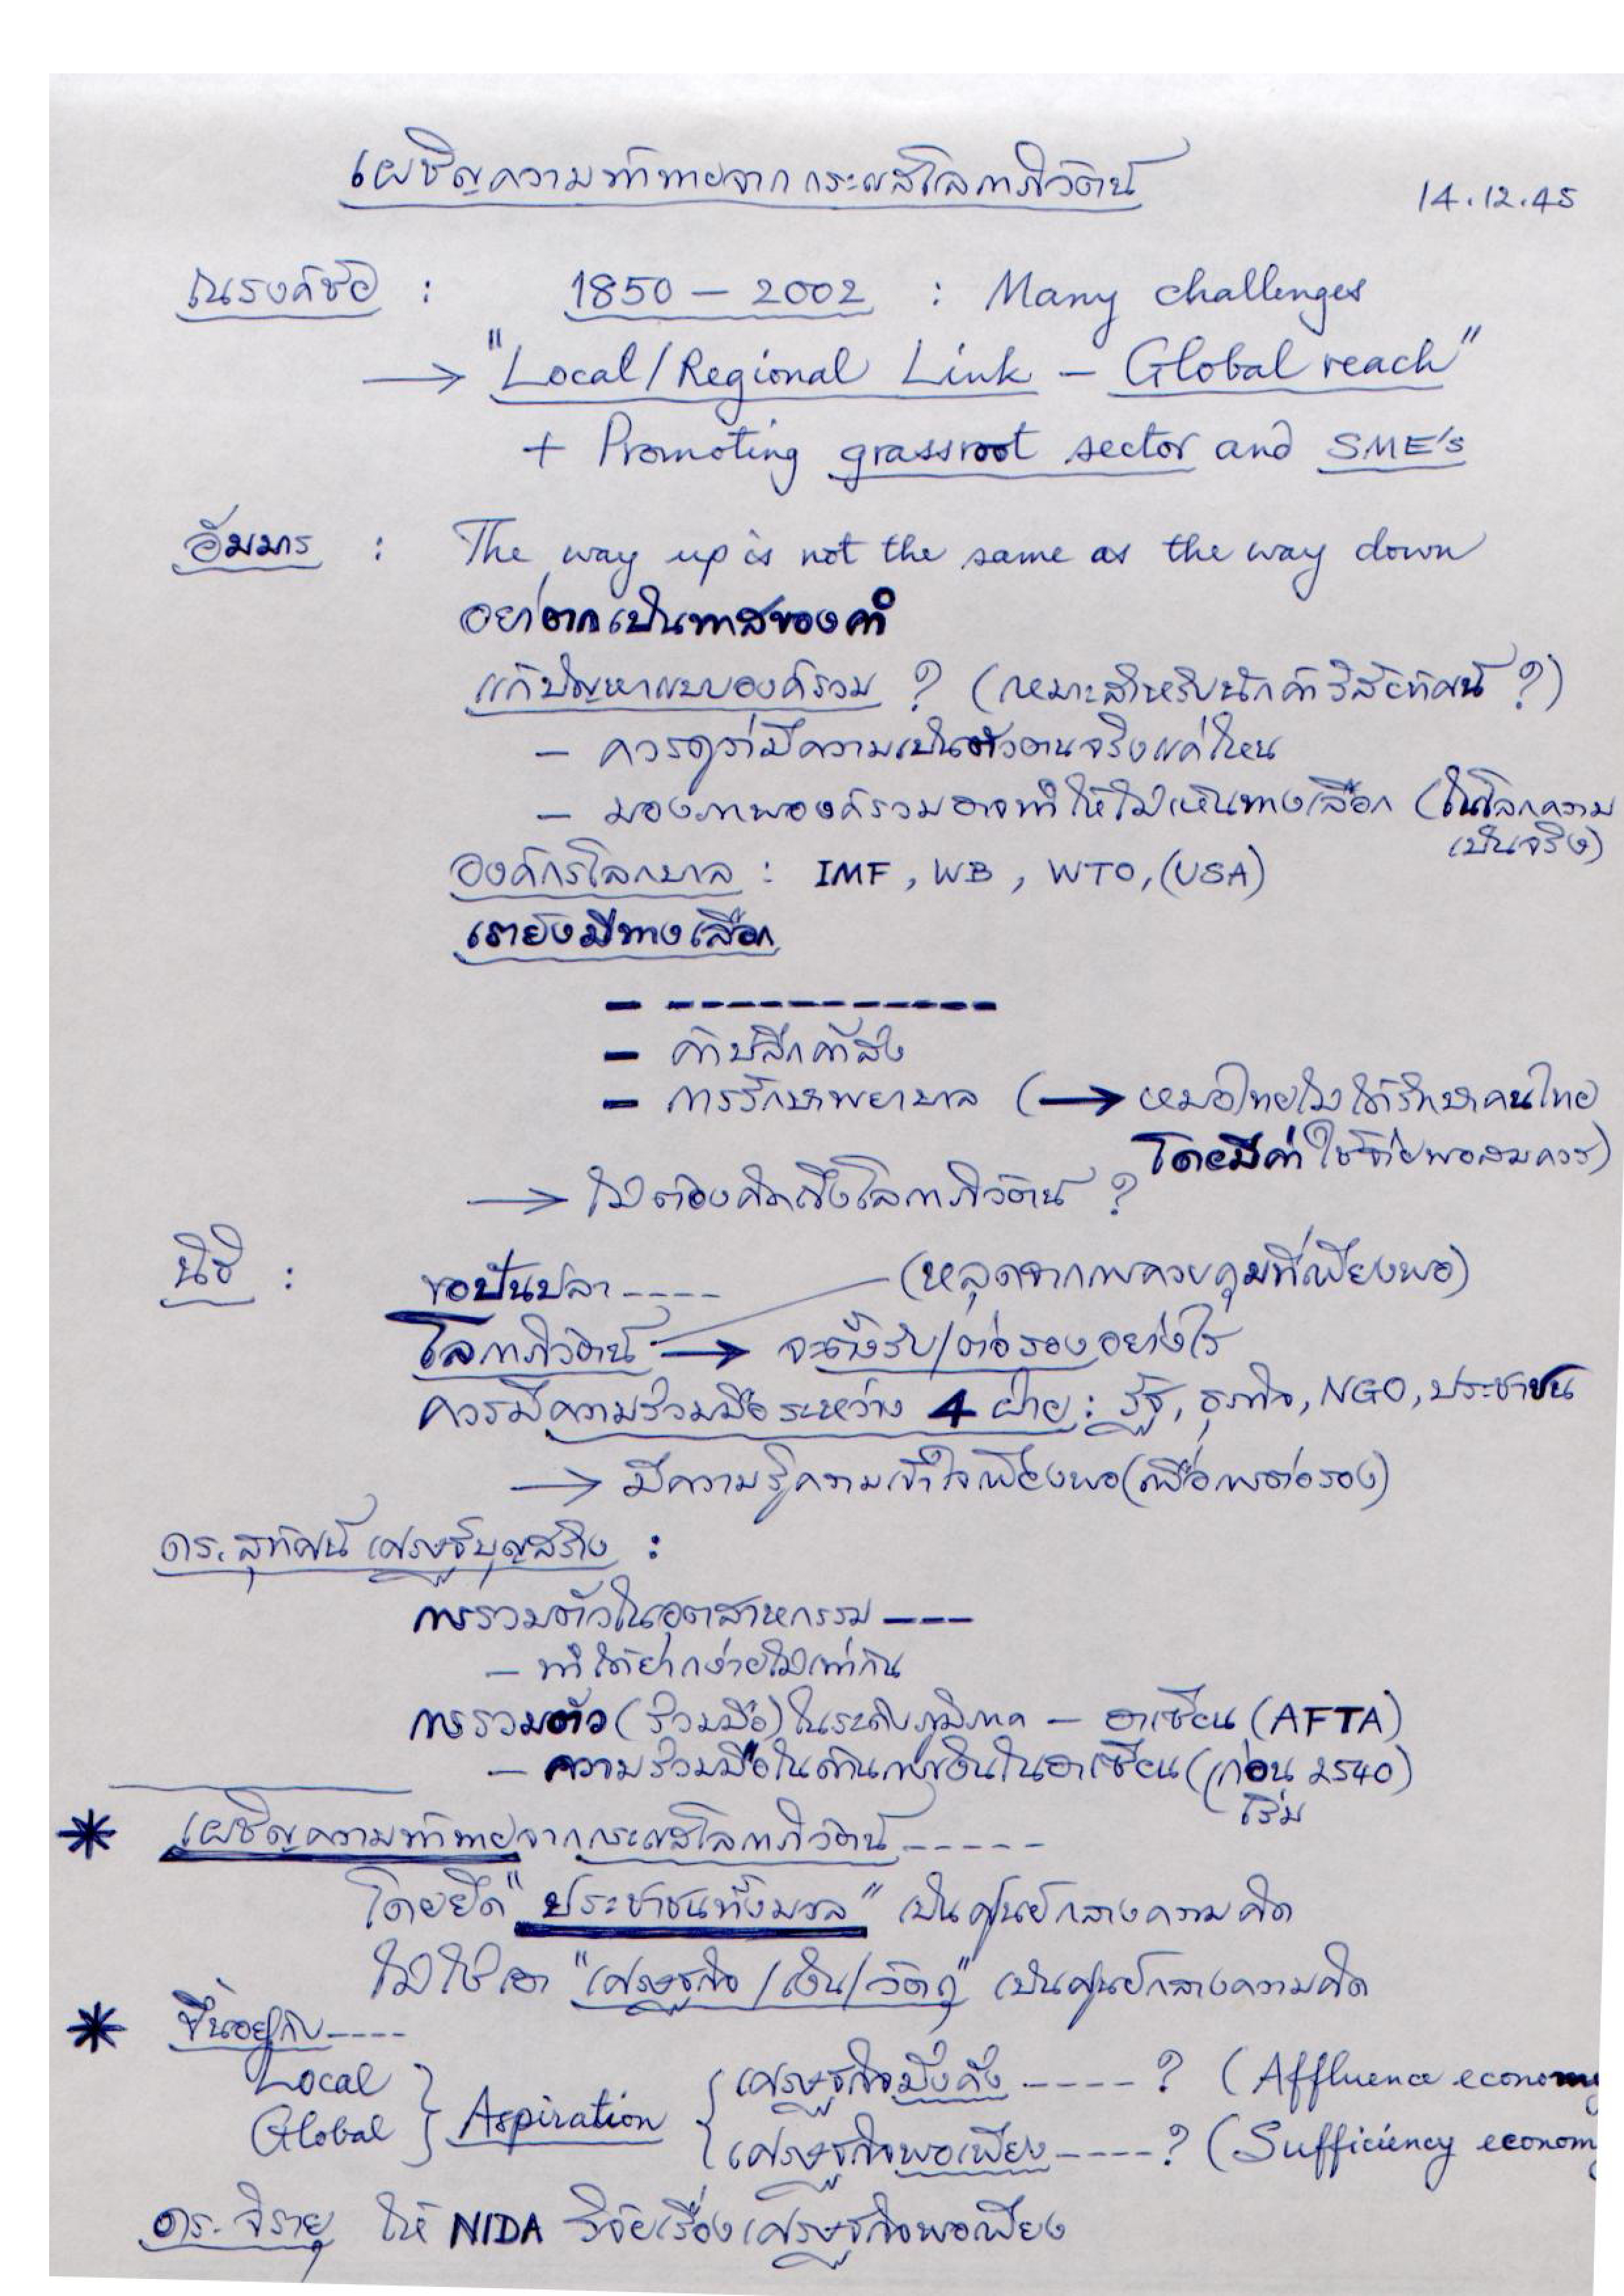 เผชิญความท้าทายจากกระแสโลกาภิวัตน์
14.12.45
ณรงค์ชัย : 1850 – 2002 : Many challenges
→ "Local/Regional Link – Global reach"
+ Promoting grassroot sector and SME's
อัมมาร : The way up is not the same as the way down
อย่าตกเป็นทาสของคำ
แก้ปัญหาแบบองค์รวม ? (เหมาะสำหรับนักค้าวิสัยทัศน์ ?)
– ควรดูว่ามีความเป็นตัวตนจริงแค่ไหน
– มองภาพองค์รวมอาจทำให้ไม่เห็นทางเลือก (ในโลกความ
เป็นจริง)
องค์กรโลกบาล : IMF, WB, WTO, (USA)
เรายังมีทางเลือก
– -----------
– ค้าปลีกค้าส่ง
– การรักษาพยาบาล (→ หมอไทยไม่ได้รักษาคนไทย
โดยมีค่าใช้จ่ายพอสมควร)
→ ไม่ต้องคิดถึงโลกาภิวัตน์ ?
นิธิ : ขอปันปลา ---- (หลุดจากการควบคุมที่เพียงพอ)
โลกาภิวัตน์ → จะตั้งรับ/ต่อรองอย่างไร
ควรมีความร่วมมือระหว่าง 4 ฝ่าย : รัฐ, ธุรกิจ, NGO, ประชาชน
→ มีความรู้ความเข้าใจเพียงพอ (เพื่อการต่อรอง)
ดร. สุทัศน์ เศรษฐ์บุญสร้าง :
การรวมตัวในอุตสาหกรรม ---
– ทำได้ยากง่ายไม่เท่ากัน
การรวมตัว (ร่วมมือ) ในระดับภูมิภาค – อาเซียน (AFTA)
– ความร่วมมือในด้านการเงินในอาเซียน (ก่อน 2540)
เริ่ม
* เผชิญความท้าทายจากกระแสโลกาภิวัตน์ -----
โดยยึด "ประชาชนทั้งมวล" เป็นศูนย์กลางความคิด
ไม่ใช่เอา "เศรษฐกิจ/เงิน/วัตถุ" เป็นศูนย์กลางความคิด
* ขึ้นอยู่กับ ----
Local } Aspiration { เศรษฐกิจมั่งคั่ง -----? (Affluence economy
Global } เศรษฐกิจพอเพียง ----? (Sufficiency econom
ดร. จิรายุ ให้ NIDA วิจัยเรื่องเศรษฐกิจพอเพียง